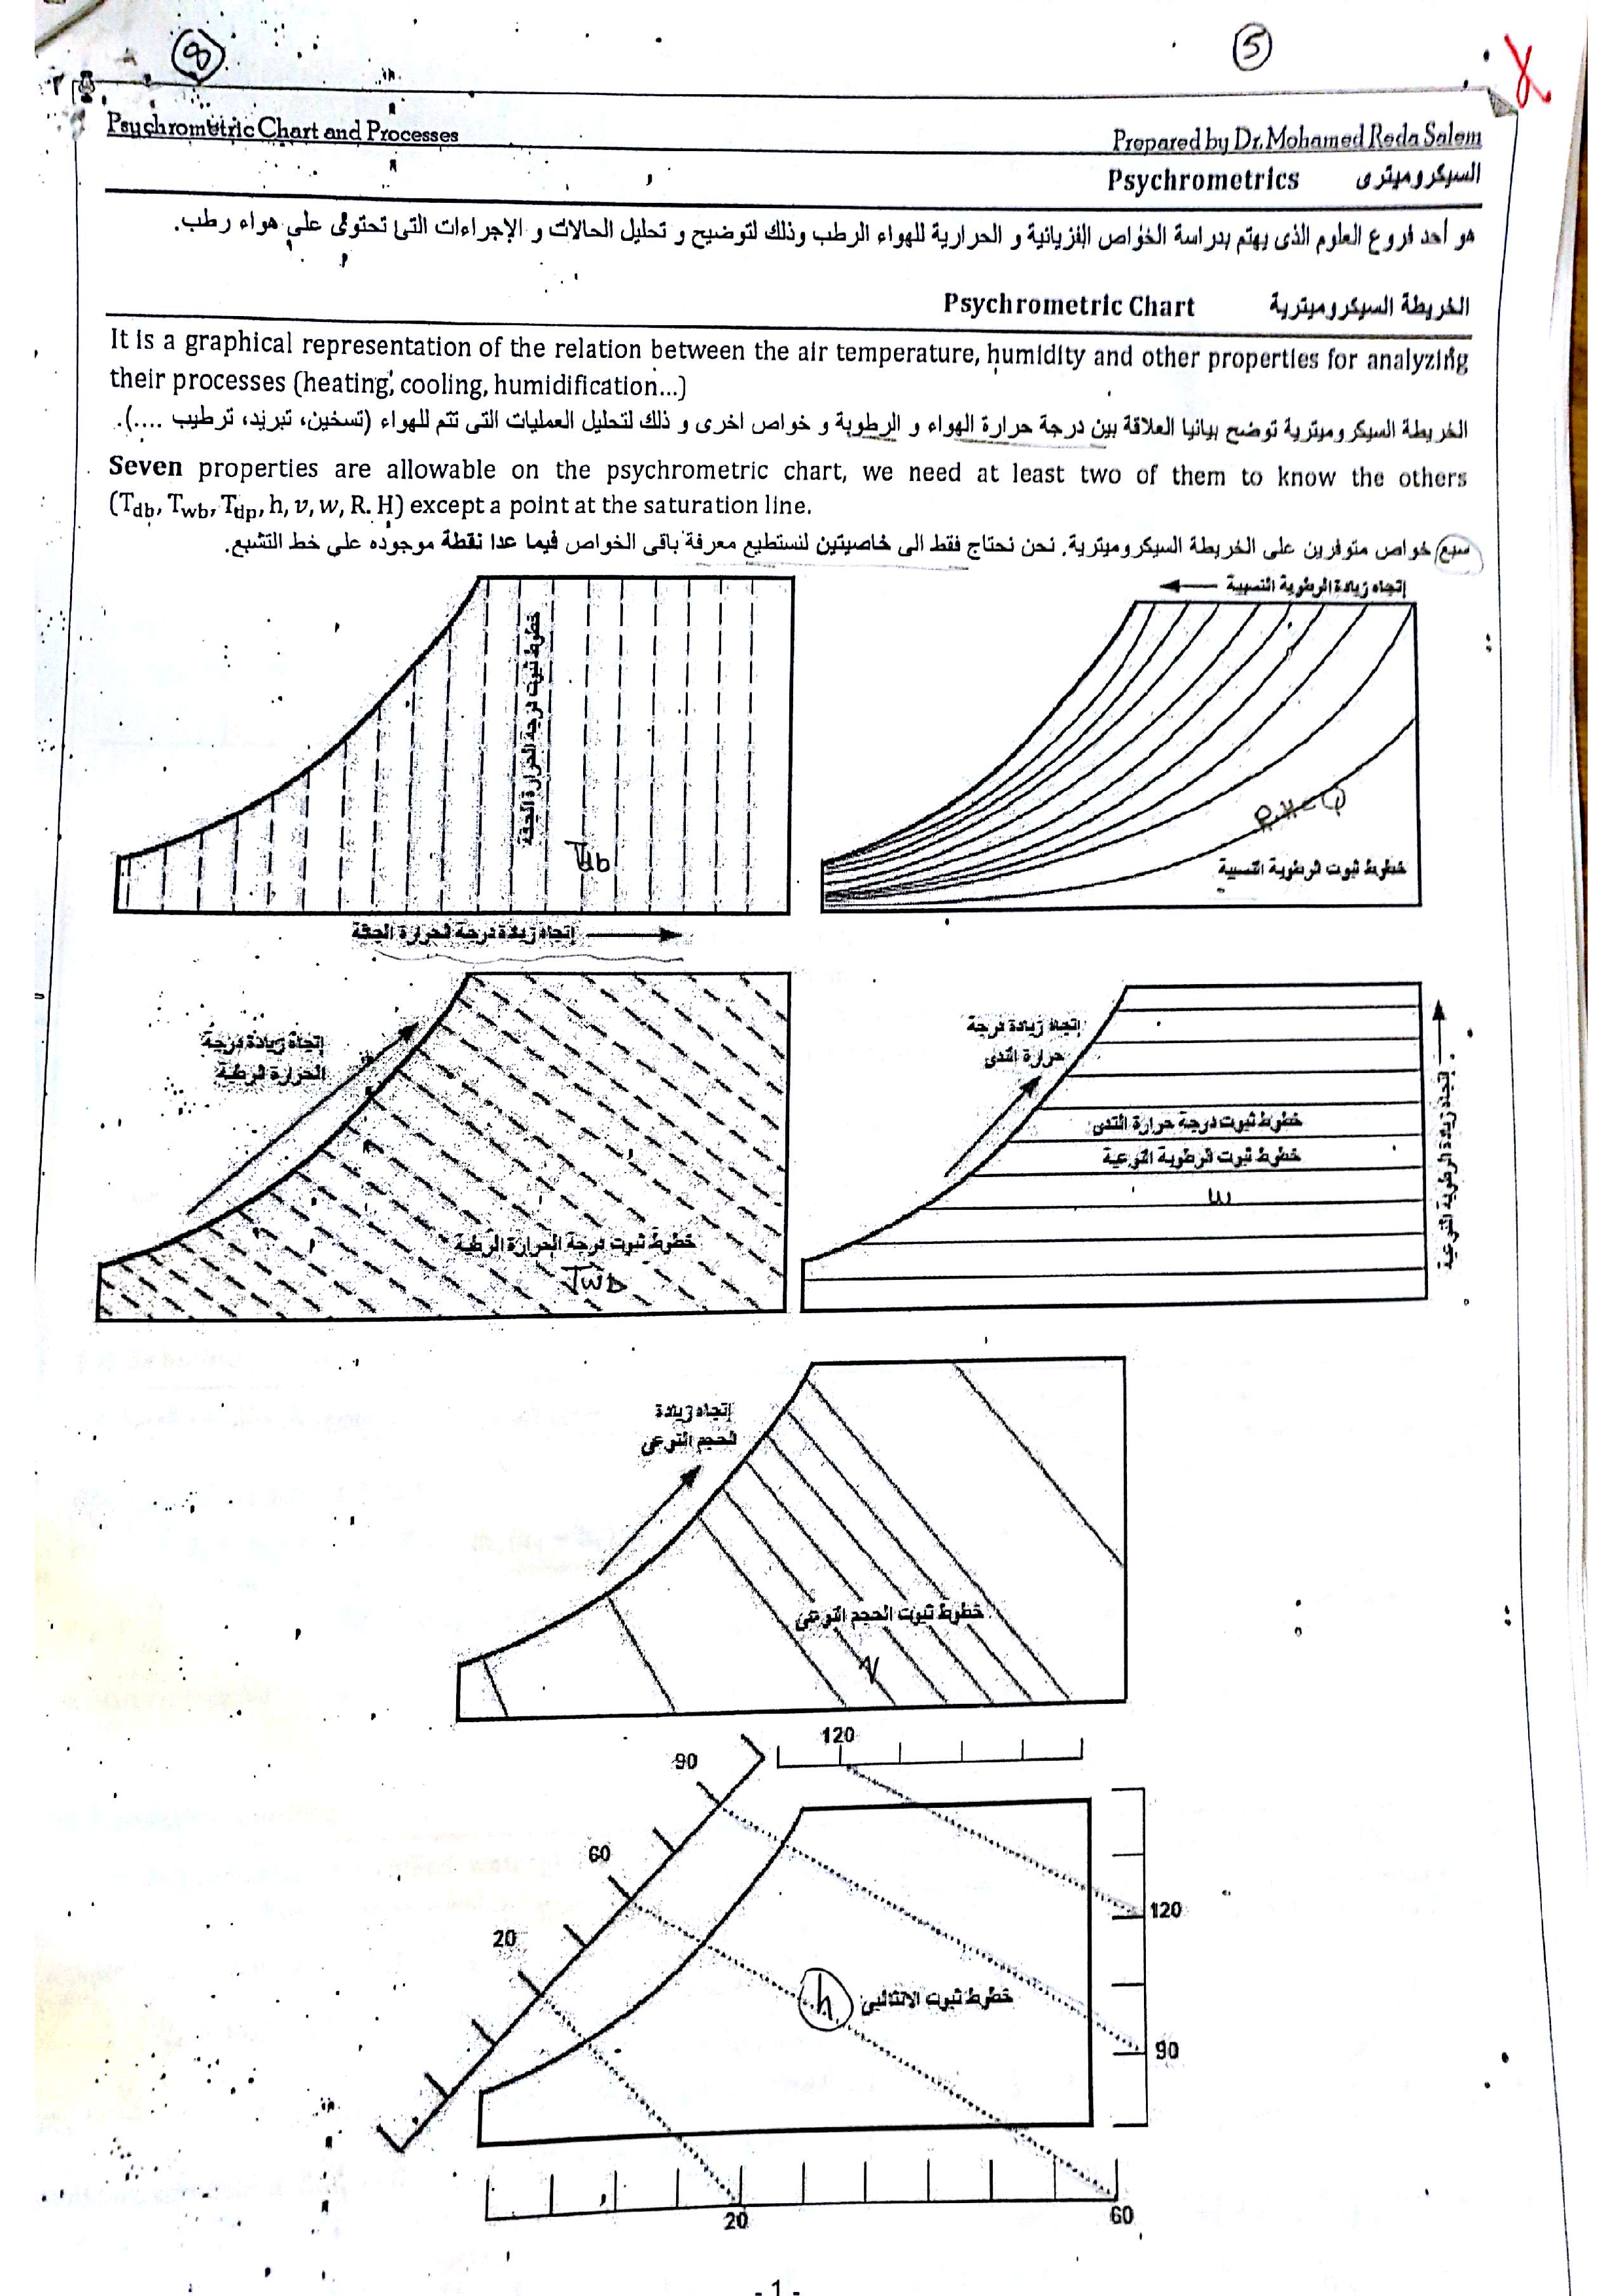 8
5
Psychrometric Chart and Processes
Prepared by Dr. Mohamed Reda Salem
Psychrometrics السيكروميترى
هو أحد فروع العلوم الذى يهتم بدراسة الخواص الفزيائية و الحرارية للهواء الرطب وذلك لتوضيح و تحليل الحالات و الإجراءات التى تحتوى على هواء رطب.
Psychrometric Chart الخريطة السيكروميترية
It is a graphical representation of the relation between the air temperature, humidity and other properties for analyzing
their processes (heating, cooling, humidification...)
الخريطة السيكروميترية توضح بيانيا العلاقة بين درجة حرارة الهواء و الرطوبة و خواص اخرى و ذلك لتحليل العمليات التى تتم للهواء (تسخين، تبريد، ترطيب ....).
Seven properties are allowable on the psychrometric chart, we need at least two of them to know the others
(Tdb, Twb, Tdp, h, v, w, R. H) except a point at the saturation line.
سبع خواص متوفرين على الخريطة السيكروميترية. نحن نحتاج فقط الى خاصيتين لنستطيع معرفة باقى الخواص فيما عدا نقطة موجوده على خط التشبع.
إتجاه زيادة الرطوبة النسبية
خطوط ثبوت درجة الحرارة الجافة
Tdb
خطوط ثبوت الرطوبة النسبية
إتجاه زيادة درجة الحرارة الجافة
إتجاه زيادة درجة
الحرارة الرطبة
خطوط ثبوت درجة الحرارة الرطبة
Twb
إتجاه زيادة درجة
حرارة الندى
خطوط ثبوت درجة حرارة الندى
خطوط ثبوت الرطوبة النوعية
w
إتجاه زيادة الرطوبة النوعية
إتجاه زيادة
الحجم النوعى
خطوط ثبوت الحجم النوعى
v
120
90
60
20
120
90
h
خطوط ثبوت الانثالبى
20
60
- 1 -